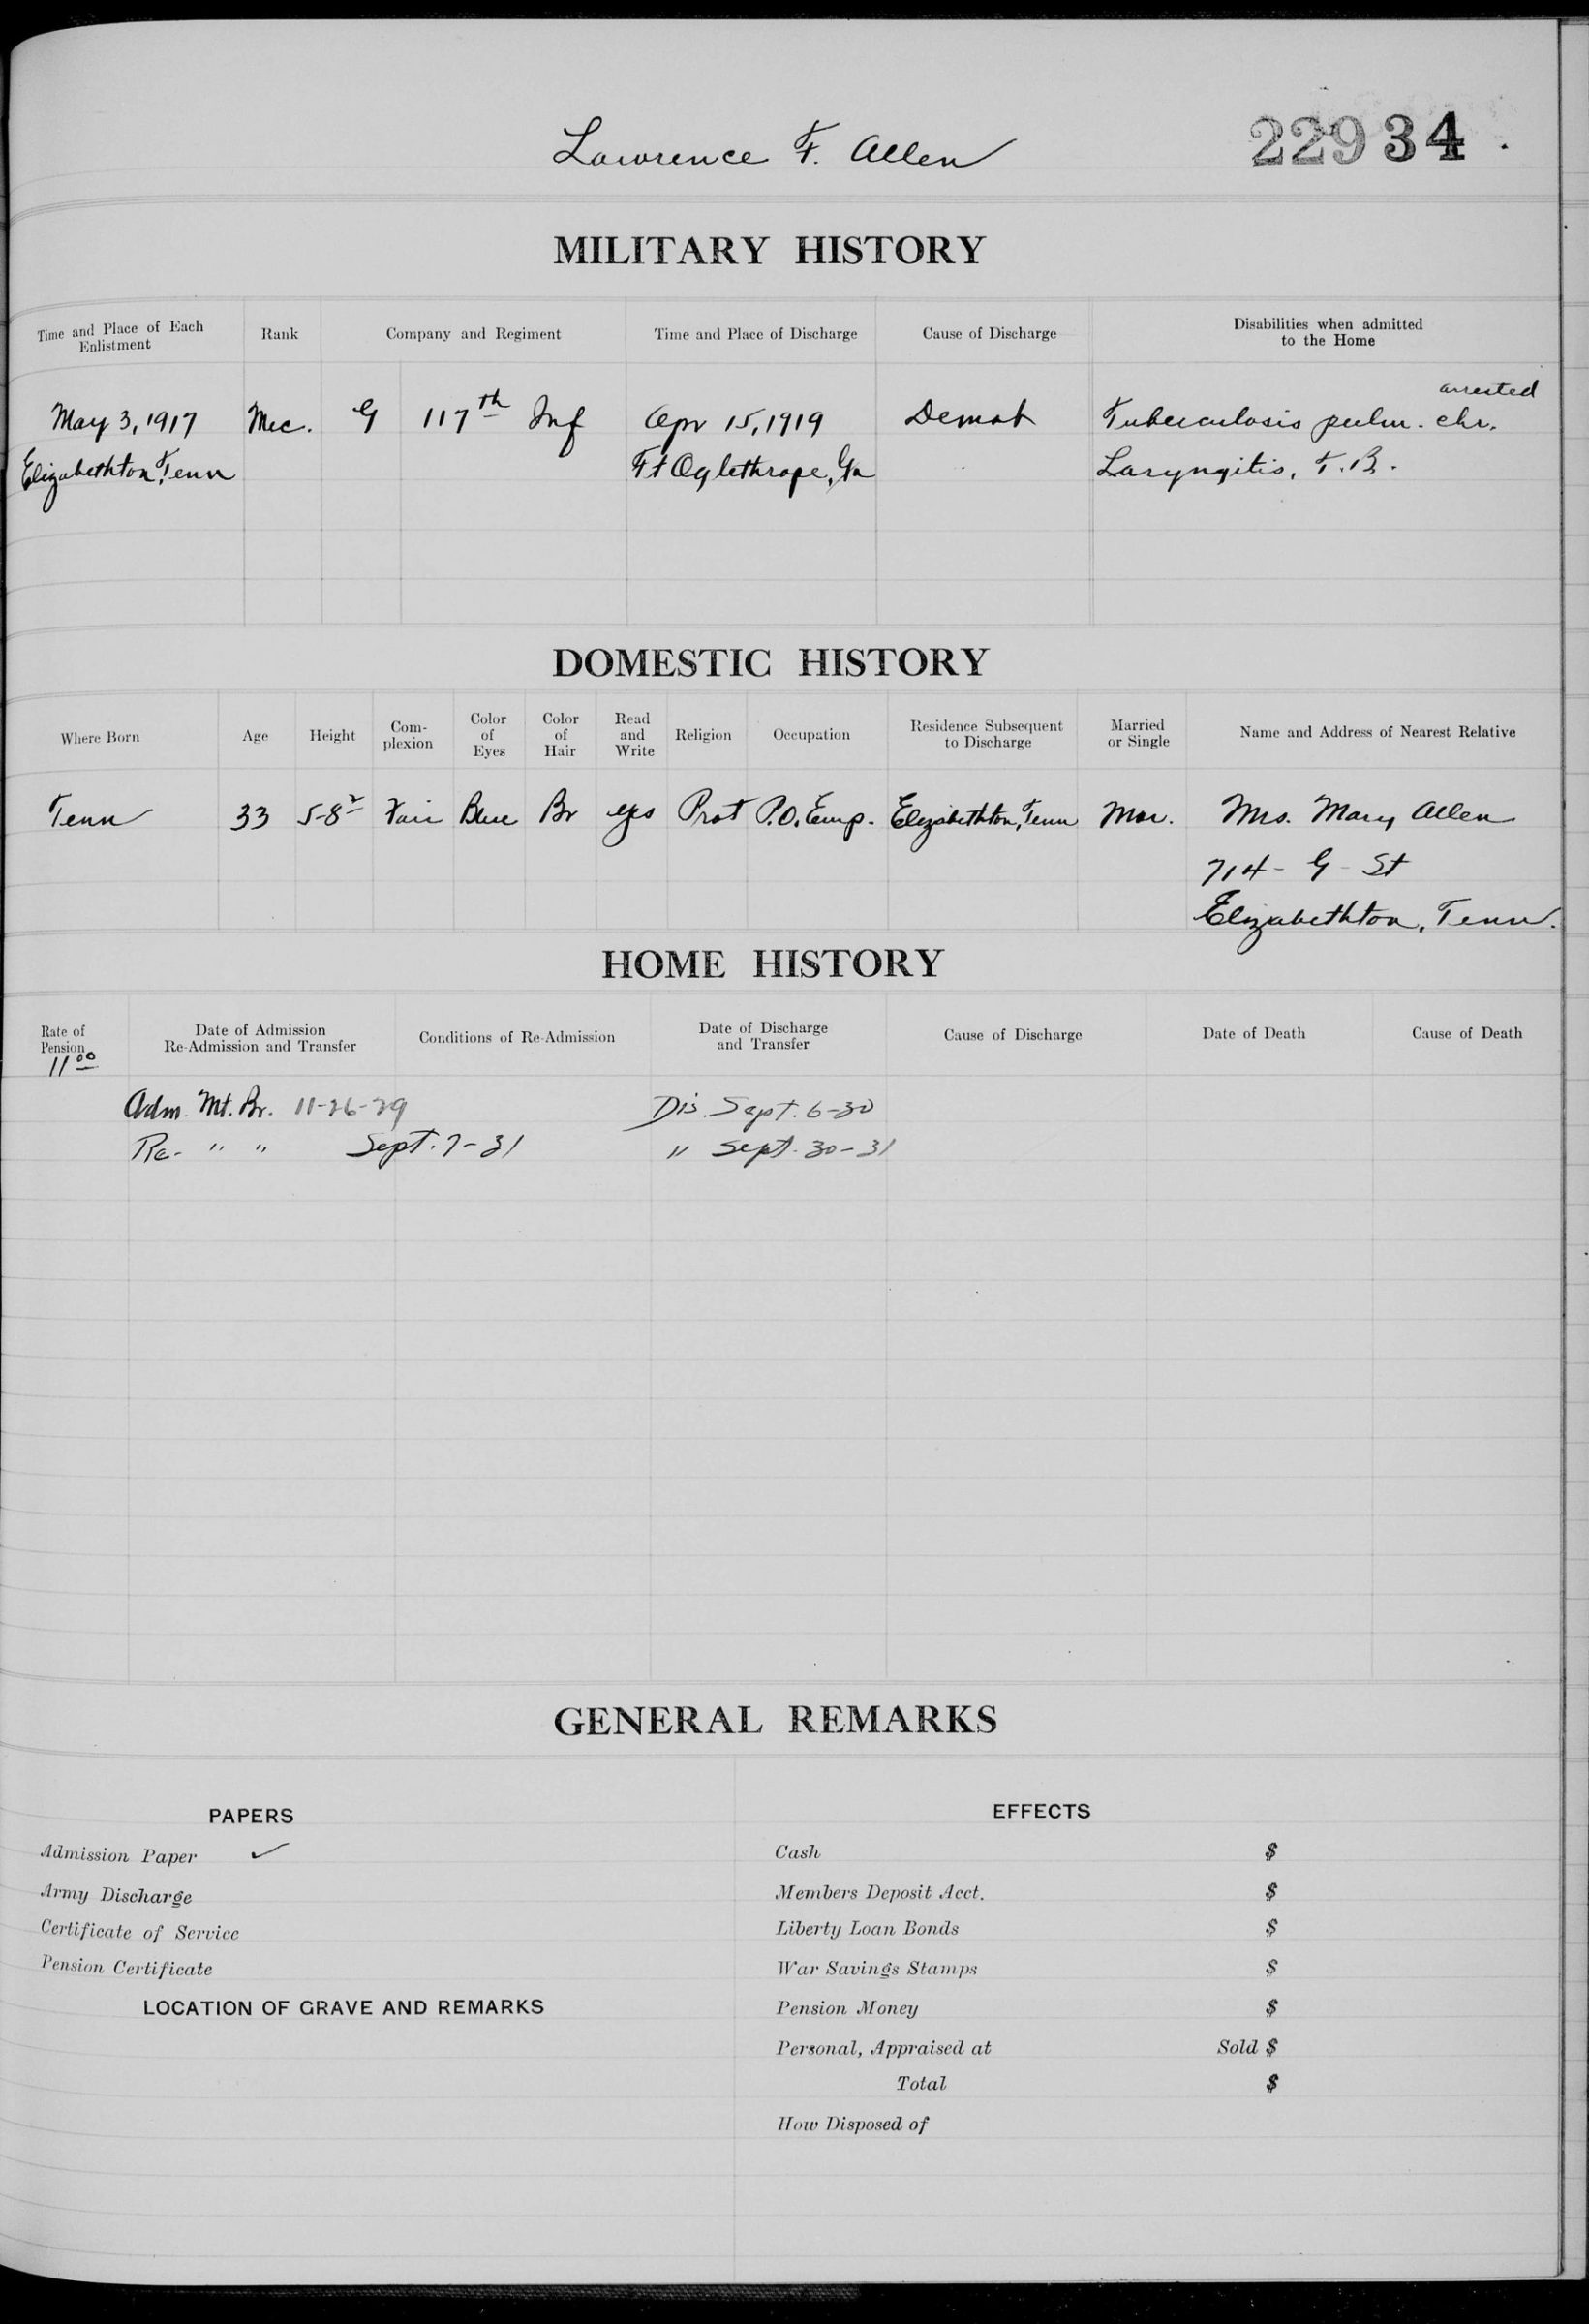 Lawrence F. Allen 22934
MILITARY HISTORY
Time and Place of Each Enlistment Rank Company and Regiment Time and Place of Discharge Cause of Discharge Disabilities when admitted to the Home
arrested
May 3, 1917 Mec. G 117th Inf Apr 15, 1919 Demob Tuberculosis pulm. chr.
Elizabethton, Tenn Ft Oglethrope, Ga Laryngitis, T.B.
DOMESTIC HISTORY
Where Born Age Height Com-plexion Color of Eyes Color of Hair Read and Write Religion Occupation Residence Subsequent to Discharge Married or Single Name and Address of Nearest Relative
Tenn 33 5-8½ Fair Blue Br yes Prot P.O. Emp. Elizabethton, Tenn Mar. Mrs. Mary Allen
714 - G - St
Elizabethton, Tenn.
HOME HISTORY
Rate of Pension Date of Admission Re-Admission and Transfer Conditions of Re-Admission Date of Discharge and Transfer Cause of Discharge Date of Death Cause of Death
11 00
Adm. Mt. Br. 11-26-29 Dis. Sept. 6-30
Re- " " Sept. 7-31 " Sept. 30-31
GENERAL REMARKS
PAPERS EFFECTS
Admission Paper ✓ Cash $
Army Discharge Members Deposit Acct. $
Certificate of Service Liberty Loan Bonds $
Pension Certificate War Savings Stamps $
LOCATION OF GRAVE AND REMARKS Pension Money $
Personal, Appraised at Sold $
Total $
How Disposed of